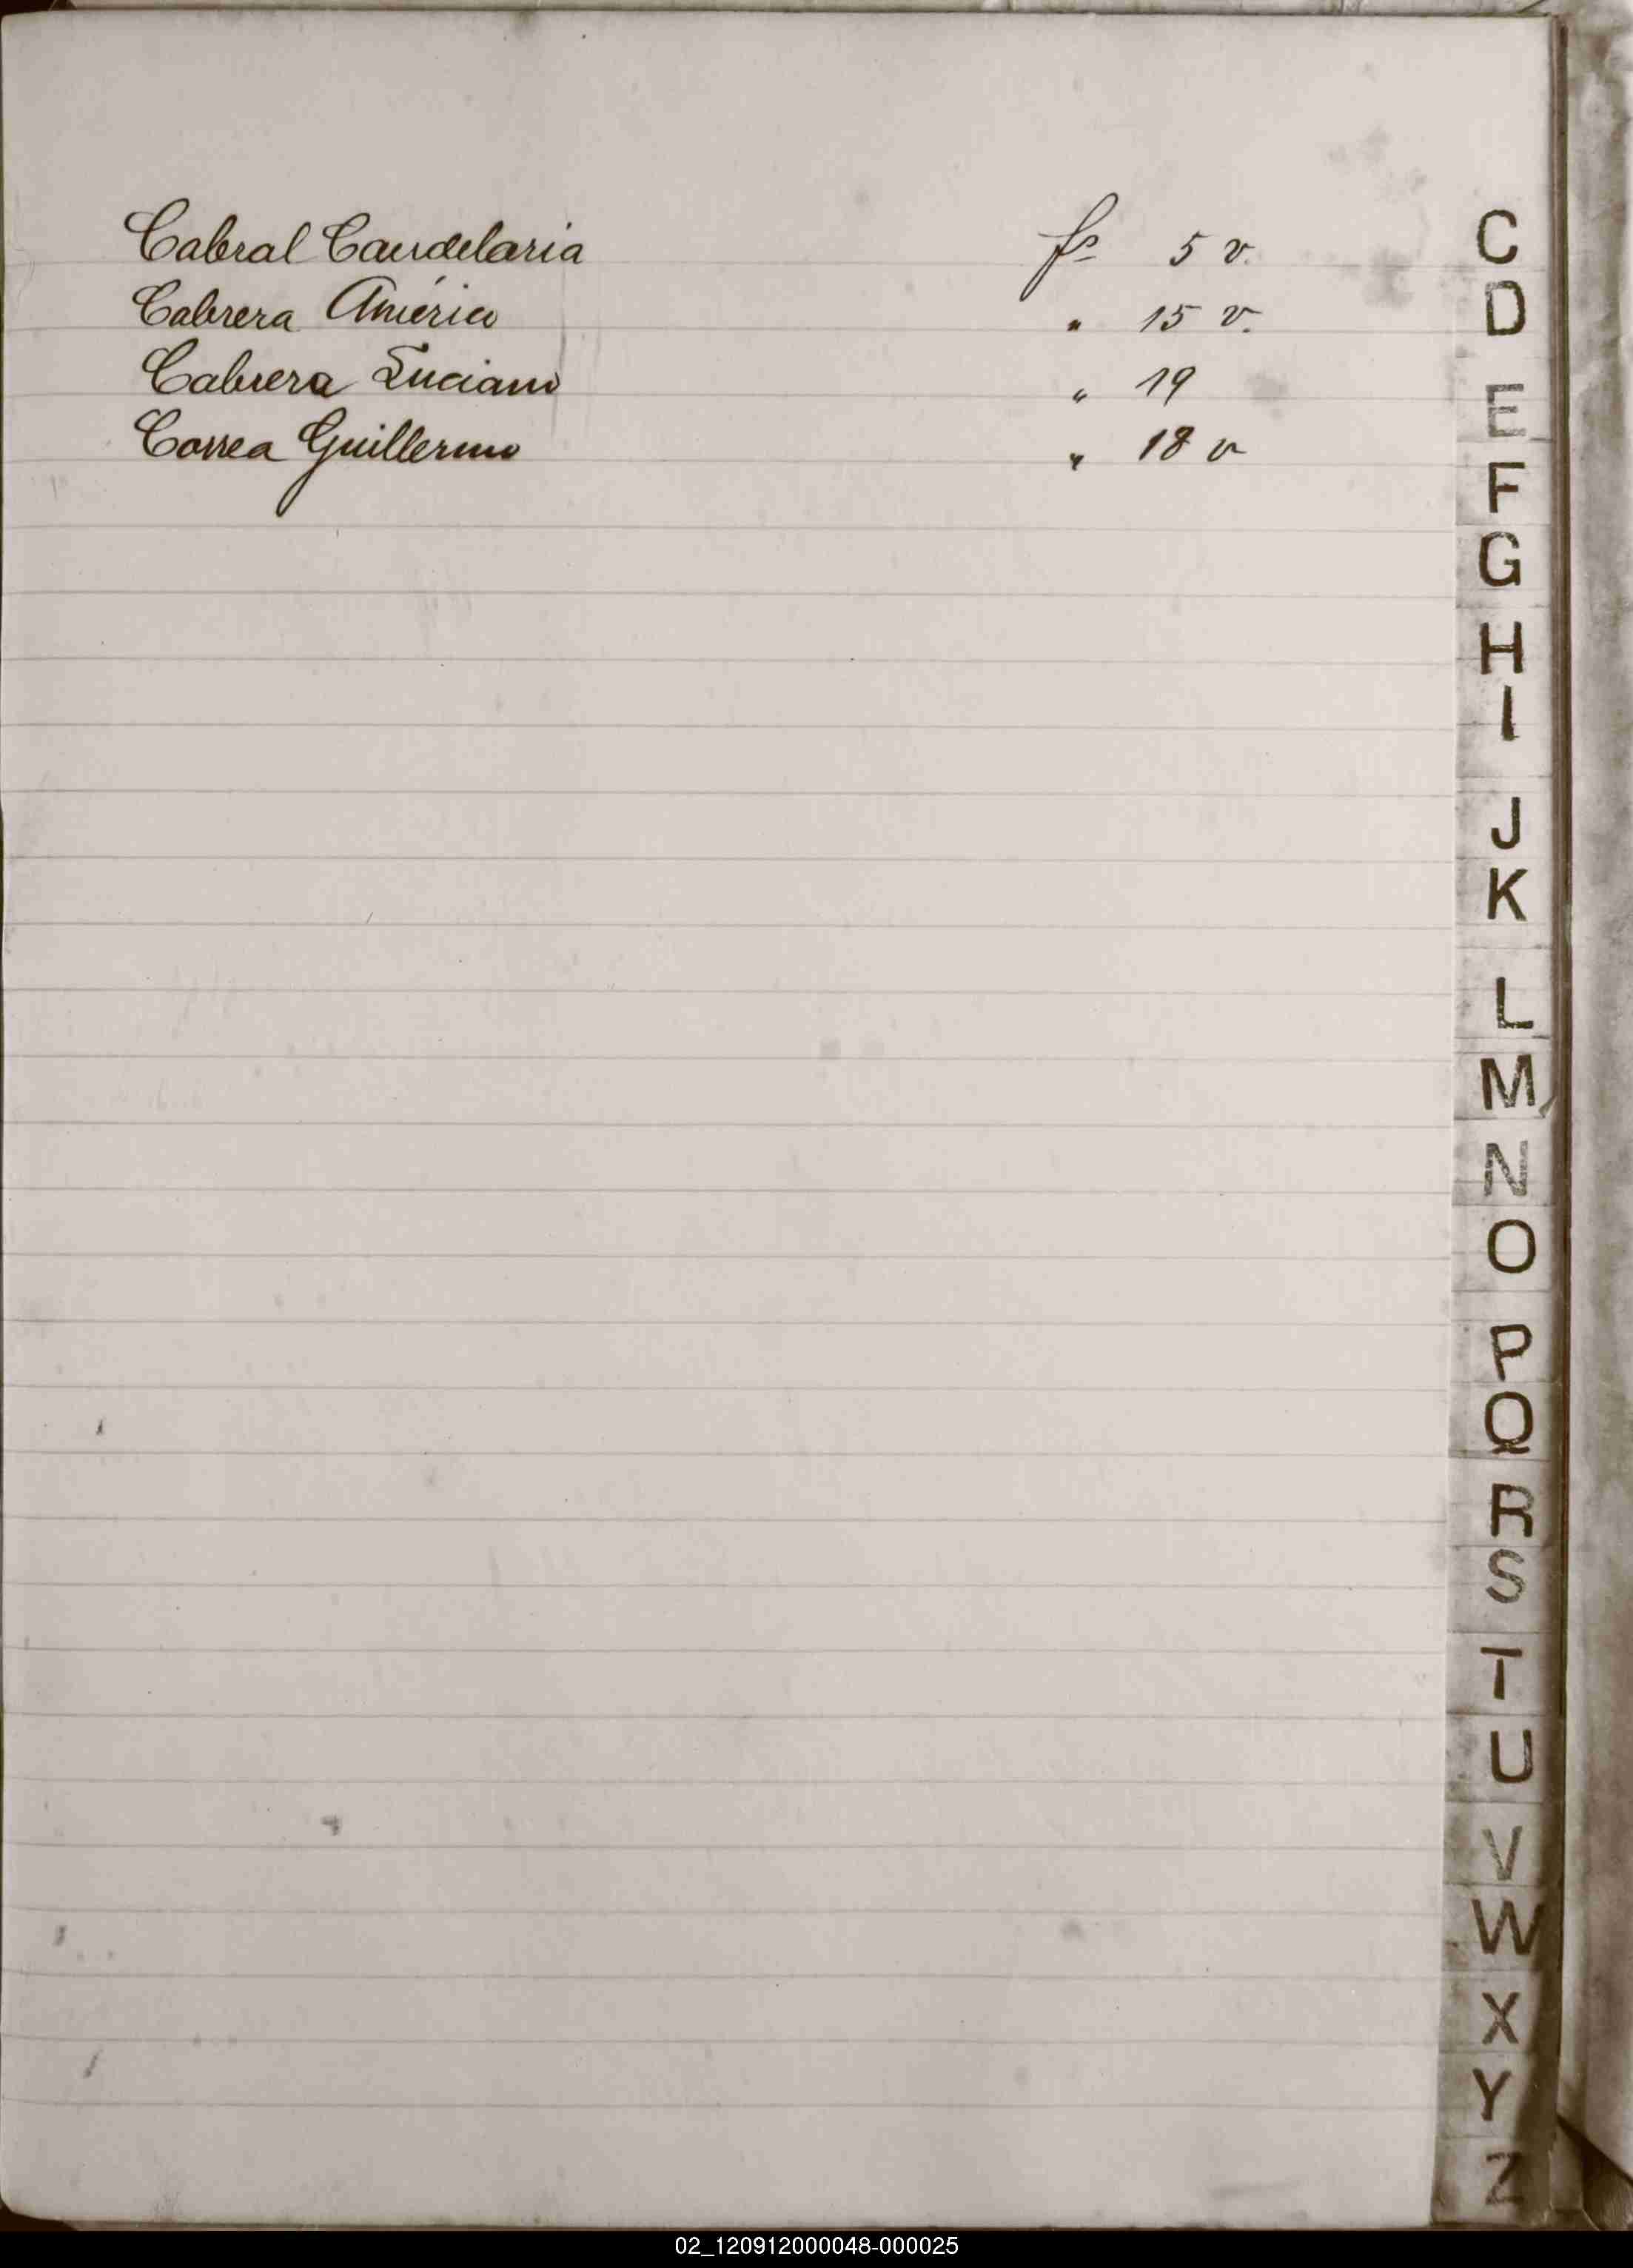 Cabral Candelaria fs 5 v.
Cabrera Américo " 15 v.
Cabrera Luciano " 19
Correa Guillermo " 18 v
C
D
E
F
G
H
I
J
K
L
M
N
O
P
Q
R
S
T
U
V
W
X
Y
Z
02_120912000048-000025